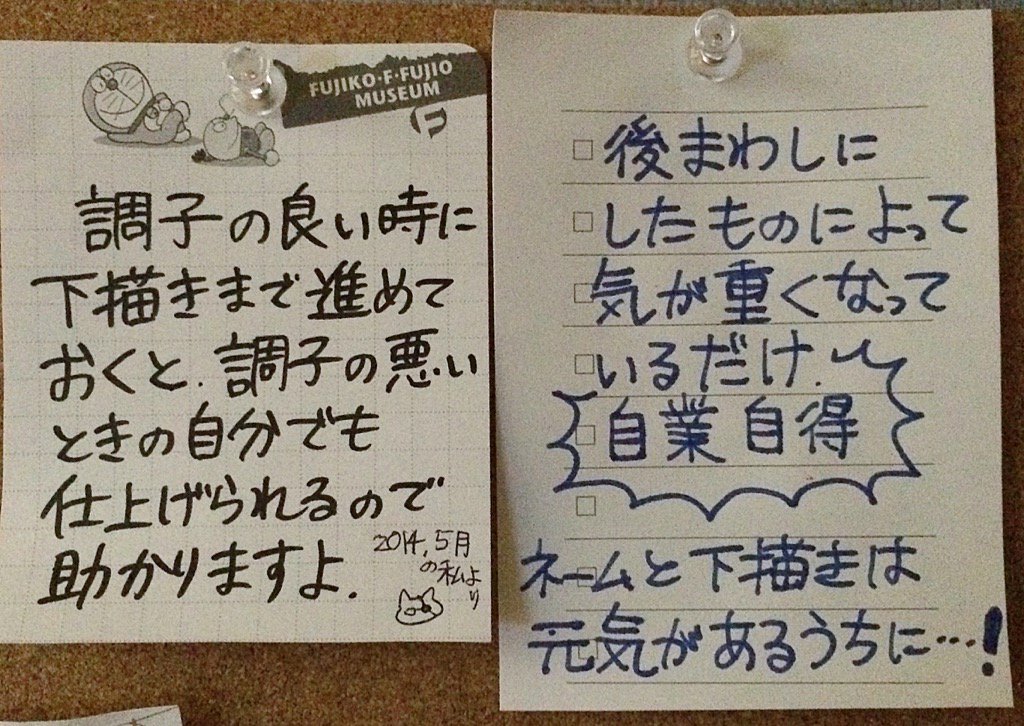 FUJIKO・F・FUJIO
MUSEUM
F
調子の良い時に
下描きまで進めて
おくと.調子の悪い
ときの自分でも
仕上げられるので
助かりますよ.
2014.5月
の私より
後まわしに
したものによって
気が重くなって
いるだけ.
自業自得
ネームと下描きは
元気があるうちに…!